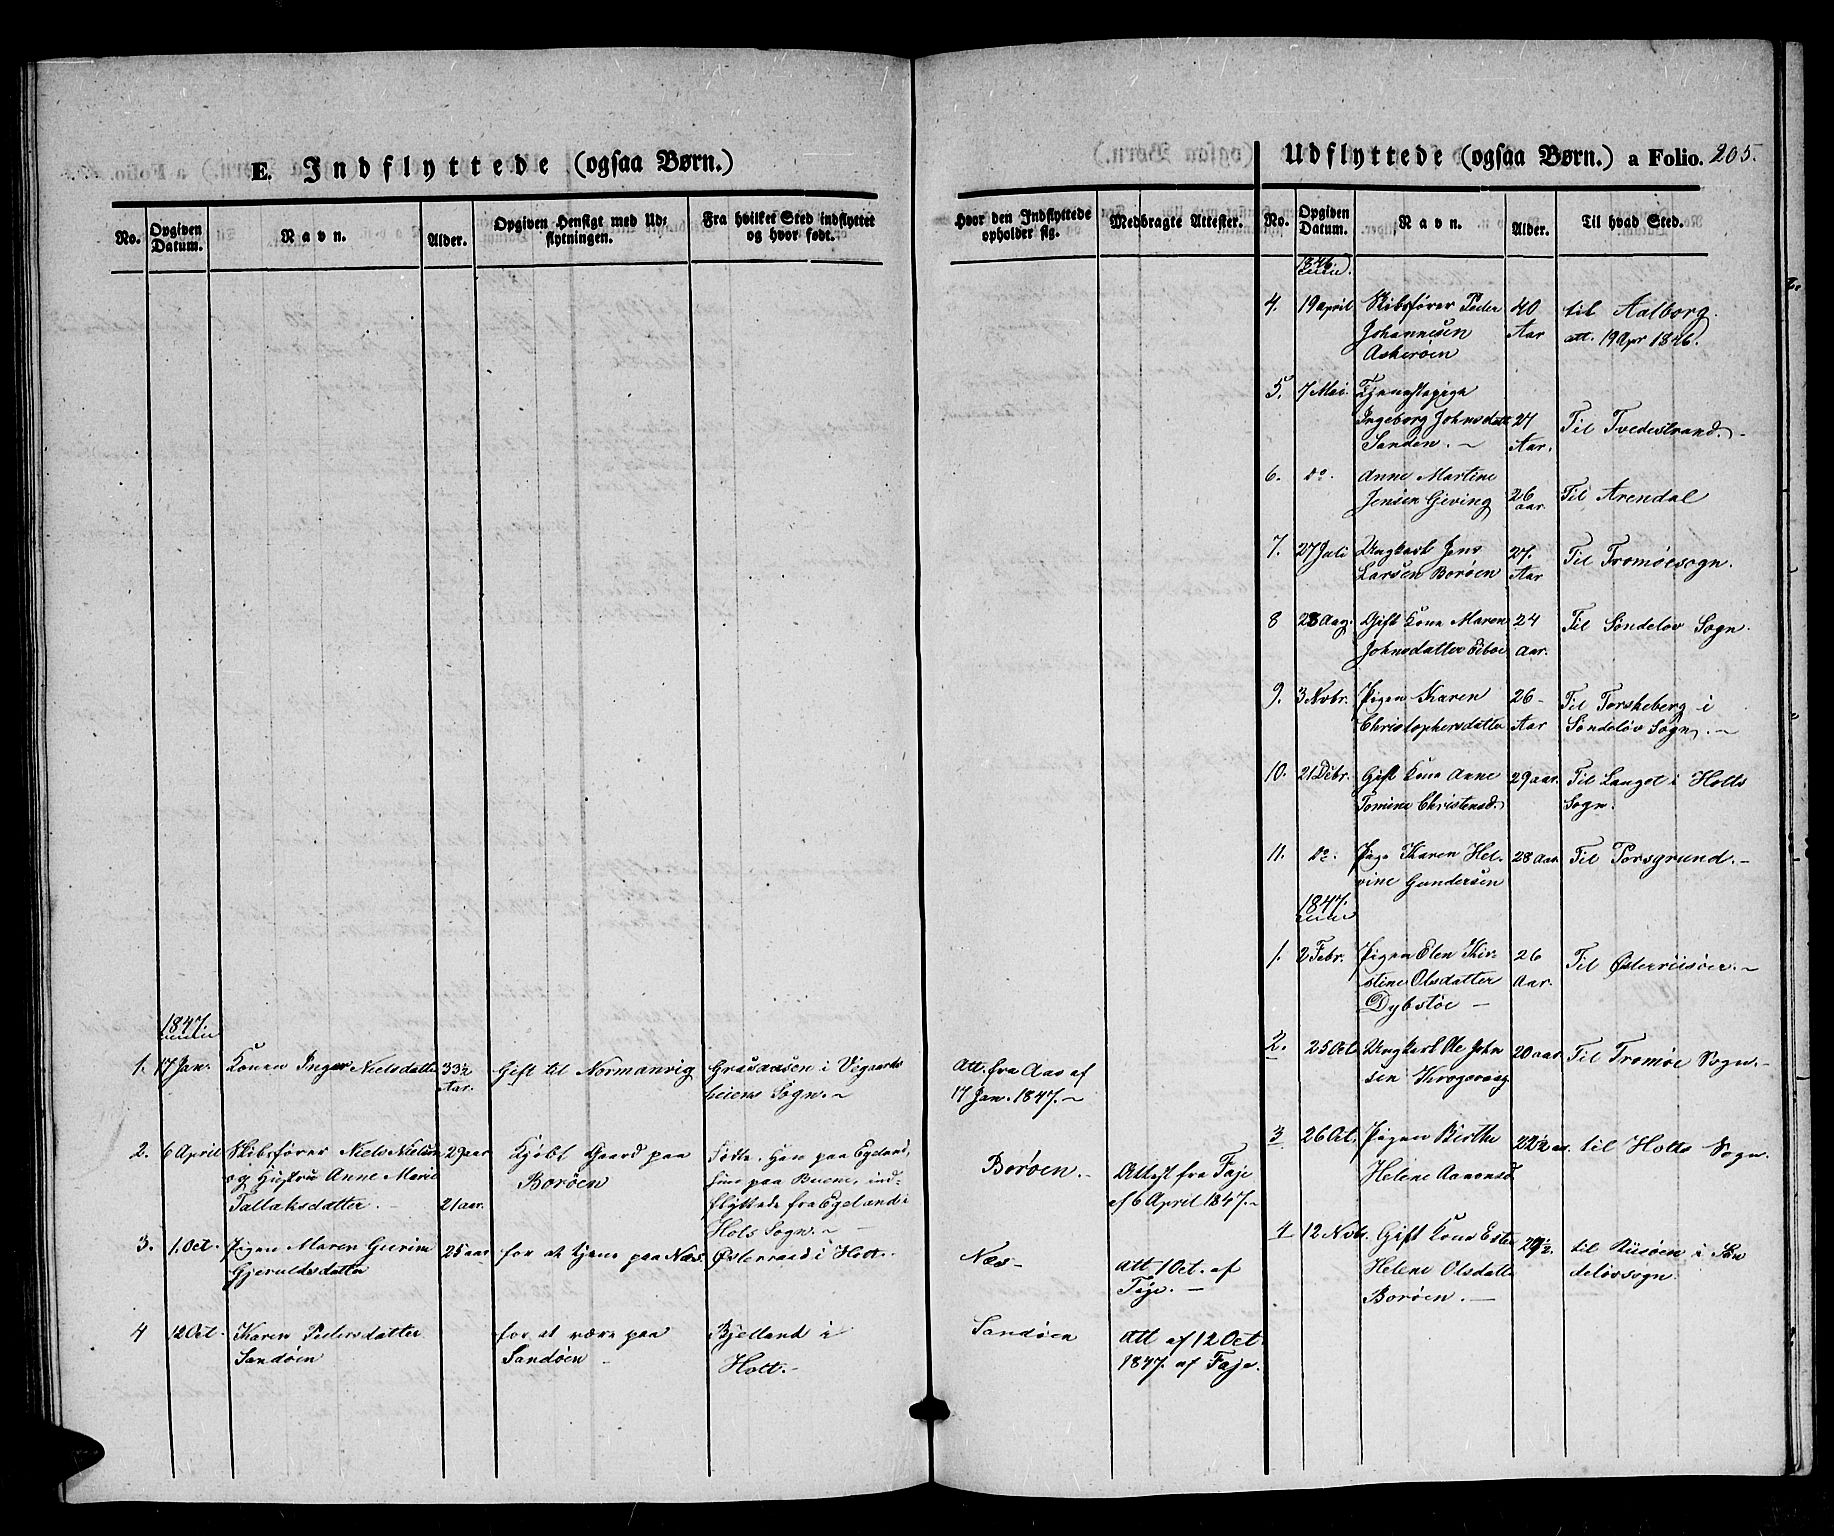 E. Indflyttede (ogsaa Børn.)
No.
Opgiven Datum.
Navn.
Alder.
Opgiven Hensigt med Ud=
flytningen.
Fra hvilket Sted indflyttet
og hvor født.
1847.
1. 17 Jan. Konen Inger Nielsdatter 33½ Gift til Normanvig Grasaasen i Vegaards
Aar. heiens Sogn.
2. 6 April Skibsfører Niels Nielsen 29 aar Kjøbt Gaard paa Fødte, Han paa Egeland,
og Hustru Anne Marie Borøen Hun paa Buene, ind=
Tallaksdatter. 21 aar. flyttede fra Egeland i
Hols Sogn.
3. 1. Oct. Pigen Maren Gurine 25 aar for at tjene paa Næs. Østeraad i Holt.
Gjeruldsdatter
4 12 Oct. Karen Pedersdatter for at være paa Bjelland i
Sandøen Sandøen Holt.
Hvor den Indflyttede
opholder sig.
Medbragte Attester.
Att. fra Aas af
17 Jan. 1847.
Borøen. Attest fra Faje
af 6 April 1847.
Næs Att 1 Oct. af
Faje.
Sandøen Att af 12 Oct.
1847. af Faje.
Udflyttede (ogsaa Børn.) a Folio. 205.
No.
Opgiven Datum.
Navn.
Alder.
Til hvad Sted.
1846.
4. 19 april Skibsfører Peder 40 til Aalborg.
Johannesen Aar att. 19 Apr 1846.
Askerøen
5. 7 Mai. Tjenestepige
Ingeborg Johnsdatt 27 Til Tvedestrand.
Sanden. Aar.
6. do. Anne Martine
Jensen Gieving 26 Til Arendal
aar.
7. 27 Juli Ungkarl Jens 27. Til Tromøesogn.
Larsen Borøen Aar
8 28 Aug. Gift Kone Maren 24 Til Søndeløv Sogn.
Johnsdatter Eiboe aar.
9. 3 Novbr. Pigen Karen 26 Til Torskeberg i
Christophersdatter Aar Søndeløv Sogn.
10. 21 Debr. Gift Kone Anne 29 aar. Til Langet i Holts
Tomine Christensd. Sogn.
11. do. Pige Karen Hel- 28 Aar. Til Porsgrund.
vine Gundersen
1847.
1. 2 Febr. Pigen Elen Kir- 26 Til Østerriisøer.
stine Olsdatter Aar.
Dybstøe
2. 25 Oct Ungkarl Ole John 20 aar Til Tromøe Sogn.
sen Krogsvaag
3 26 Oct. Pigen Birthe 22½ aar. til Holts Sogn.
Helene Aanonsd
4 12 Nvbr. Gift Kone Ester 29½. til Riisøen i Søn
Helene Olsdatter deløvsogn.
Borøen.